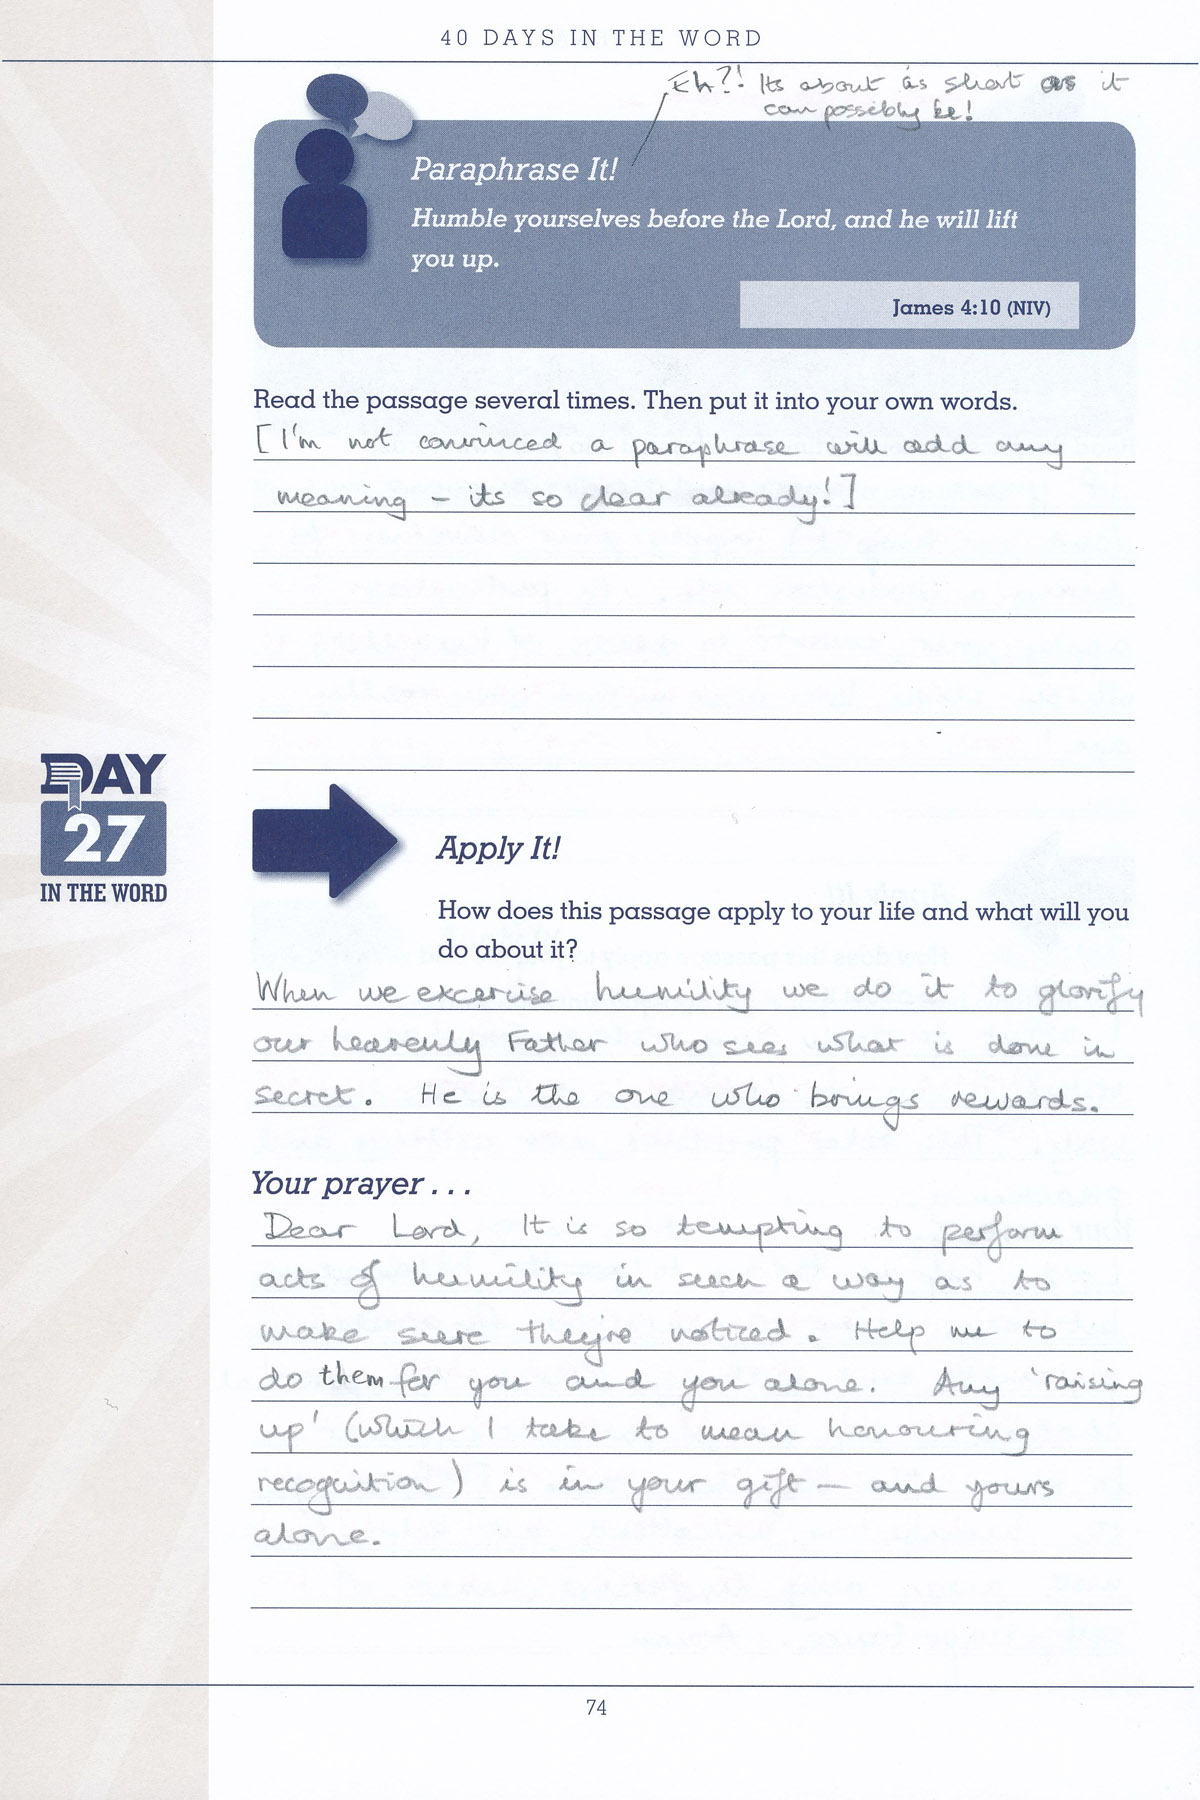 40 DAYS IN THE WORD
Eh?! Its about as short as it
can possibly be!
Paraphrase It!
Humble yourselves before the Lord, and he will lift
you up.
James 4:10 (NIV)
Read the passage several times. Then put it into your own words.
[I'm not convinced a paraphrase will add any
meaning – its so clear already!]
DAY
27
IN THE WORD
Apply It!
How does this passage apply to your life and what will you
do about it?
When we excercise humility we do it to glorify
our heavenly Father who sees what is done in
secret. He is the one who brings rewards.
Your prayer . . .
Dear Lord, It is so tempting to perform
acts of humility in such a way as to
make sure they're noticed. Help me to
do them for you and you alone. Any 'raising
up' (which I take to mean honouring
recognition) is in your gift – and yours
alone.
74